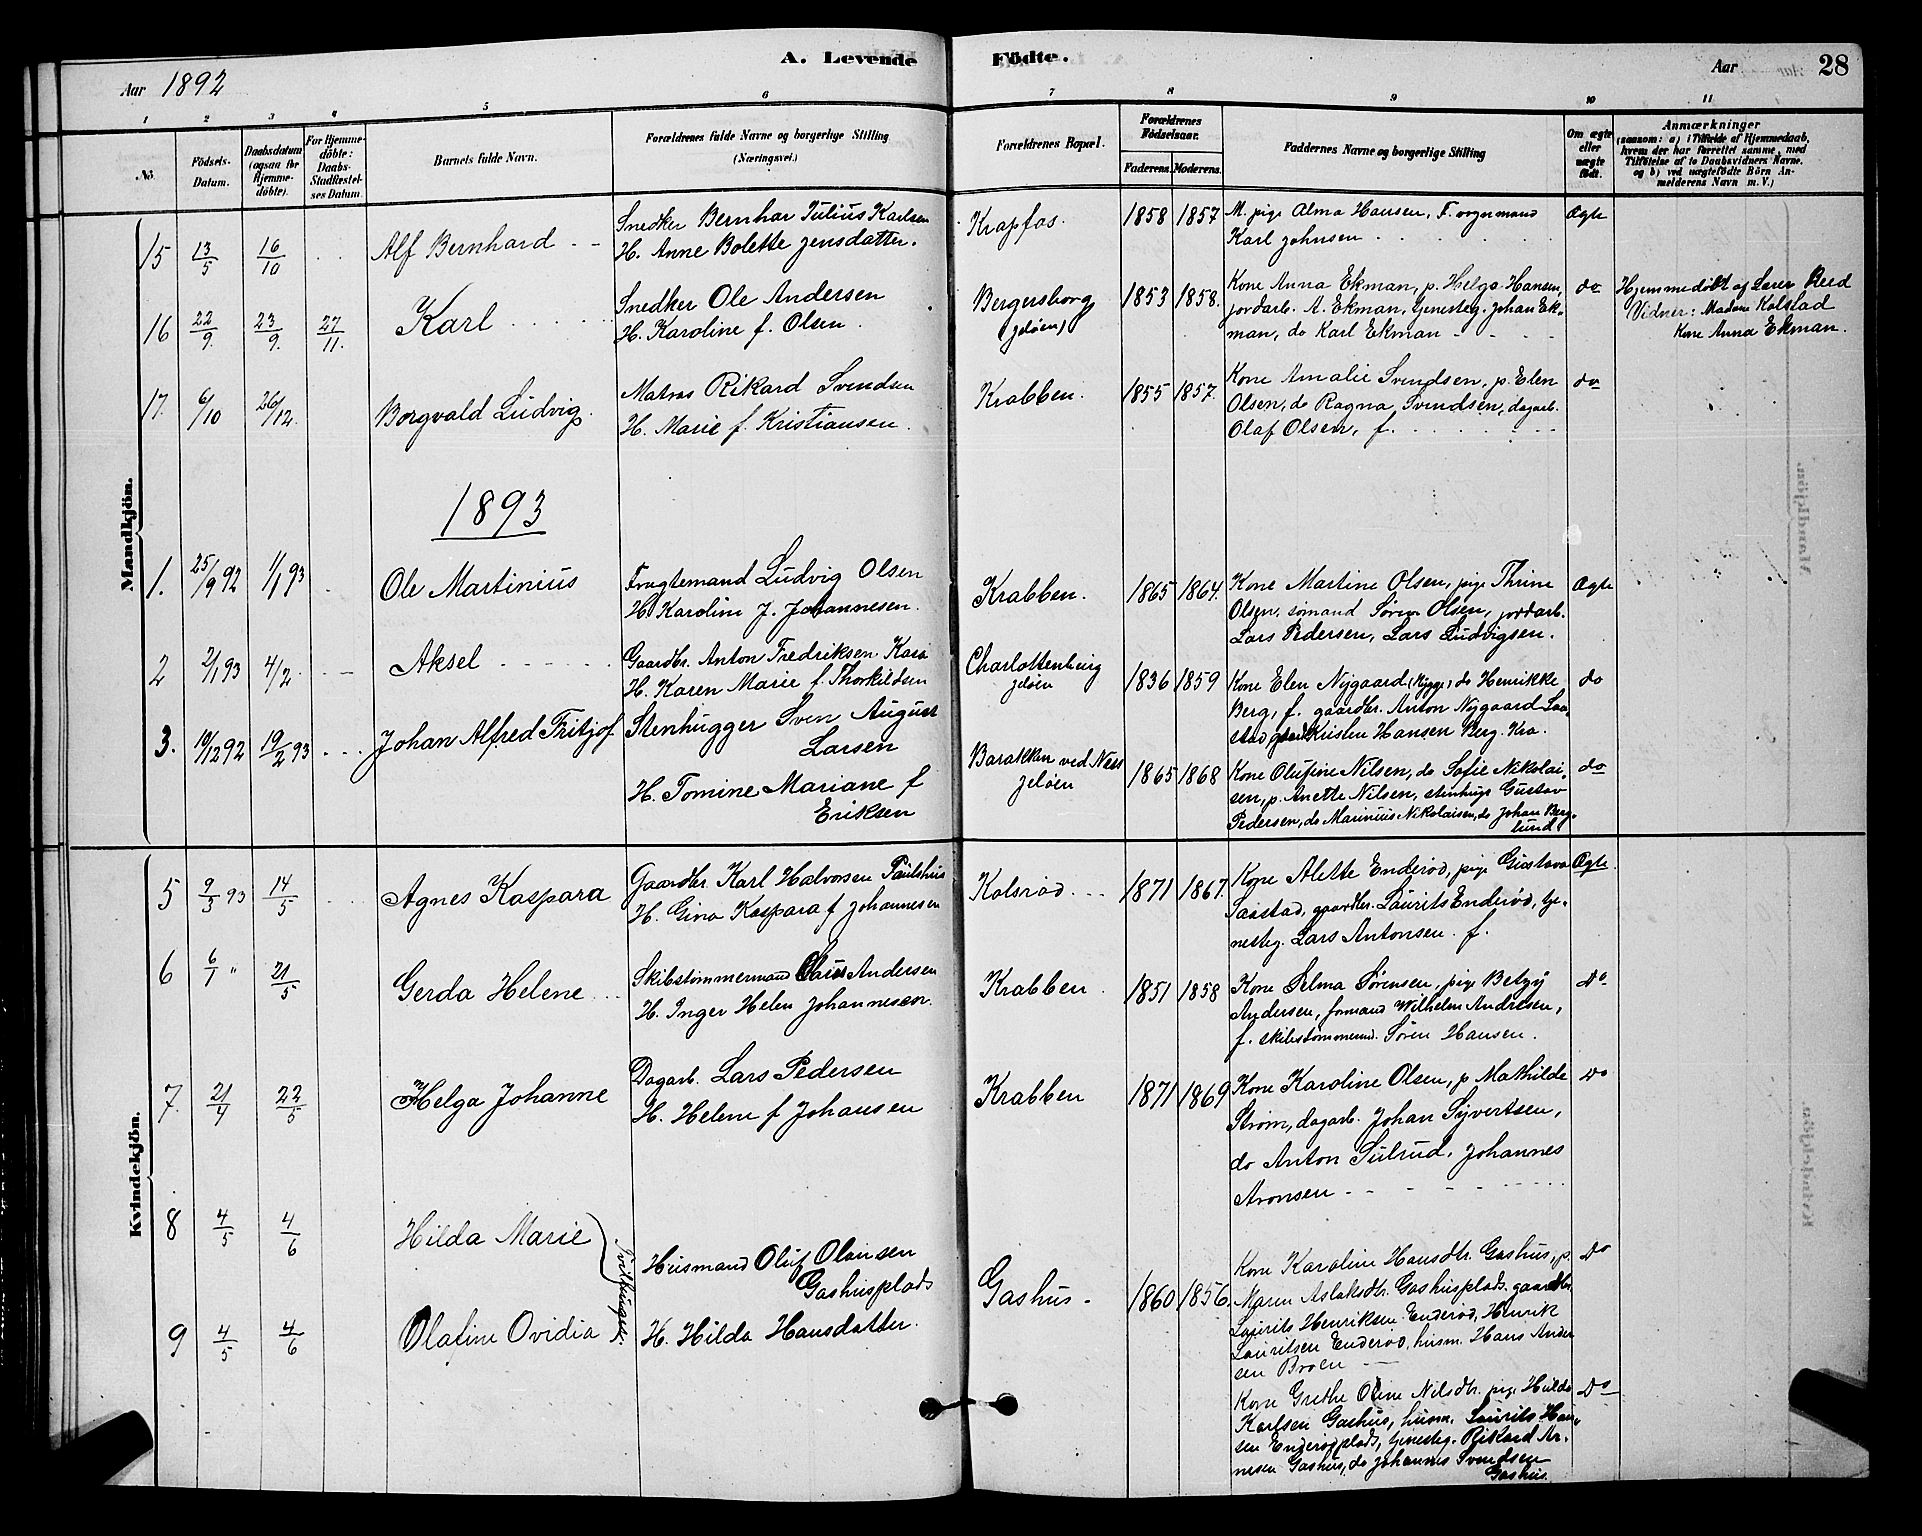 A. Levende Födte.
Aar 1892
Aar 28
1 2 3 4 5 6 7 8 9 10 11
No.
Födsels-Datum.
Daabsdatum (ogsaa for Hjemme-döbte).
For Hjemme-döbte: Daabs-Stadfæstel-ses Datum.
Barnets fulde Navn.
Forældrenes fulde Navne og borgerlige Stilling (Næringsvei.)
Forældrenes Bopæl.
Forældrenes Födselsaar.
Faderens. Moderens.
Faddernes Navne og borgerlige Stilling
Om ægte eller uægte födt.
Anmærkninger
(saasom: a) i Tilfælde af Hjemmedaab, hvem der har forrettet samme, med Tilföielse af to Daabsvidners Navne, og b) ved uægtefödte Börn An-melderens Navn m. V.)
Mandkjön.
15 13/5 16/10 Alf Bernhard
Snedker Bernhar Julius Karlsen
H. Anne Bolette Jensdatter.
Krapfos. 1858 1857
M. pige Alma Hansen, F.
Karl Johnsen
Ægte
16 22/9 23/9 27/11 Karl
Snedker Ole Andersen
H. Karoline f. Olsen.
Bergersborg (Jeløen) 1853 1858.
Kone Anna Ekman, p. Helga Hansen,
jordarb. A. Ekman, tjenesteg. Johan Ek-
man, do Karl Ekman
do
Hjemmedøbt af Lærer Reed
Vidner: Madame Kolstad
Kone Anna Ekman.
17. 6/10 26/12. Borgvald Ludvig.
Matros Rikard Svendsen
H. Marie f. Kristiansen.
Krabben. 1855 1857.
Kone Amalie Svendsen, p. Elen
Olsen, do Ragna Svendsen, dagarb.
Olaf Olsen, f.
do
1893
1. 25/9 92 1/1 93 Ole Martinius
Fragtemand Ludvig Olsen
H. Karoline J. Johannesen.
Krabben. 1865 1864.
Kone Martine Olsen, pige Thrine
Olsen, sømand Søren Olsen, jordarb.
Lars Pedersen, Lars Ludvigsen.
Ægte
2 2/1 93 4/2 Aksel
Gaardbr. Anton Fredriksen
H. Karen Marie f. Thorkildsen
Charlottenburg Jeløen 1836 1859
Kone Elen Nygaard (Rygge) do Henrikke
Berg, f. gaardbr. Anton Nygaard
Kristen Hansen Berg.
do
3. 19/12 92 19/2 93 Johan Alfred Fritjof
Stenhugger Sven August
Larsen
H. Tomine Mariane f
Eriksen
Barakken ved Næs Jeløen 1865 1868
Kone Olufine Nilsen, do Sofie Nikolai-
sen, p. Anette Nilsen, stenhug. Gustav
Pedersen, do Marinius Nikolaisen, do Johan Berg-
lund.
do
Kvindekjön.
5 9/3 93 14/5 Agnes Kaspara
Gaardbr. Karl Halvorsen Paulshus
H. Gina Kaspara f Johannesen
Kolsrød 1871 1867.
Kone Alette Enderød, pige Gustava
Saastad, gaardbr. Laurits Enderød, tje-
nesteg. Lars Antonsen. f.
Ægte
6 6/1 " 21/5 Gerda Helene
Skibstømmermand Andersen
H. Inger Helen Johannesen.
Krabben. 1851 1858
Kone Selma Sørensen, pige Betzy
Andersen, formand Wilhelm Andresen,
f. skibstømmermd. Søren Hansen.
Do
7. 21/4 22/5 Helga Johanne
Dagarb. Lars Pedersen
H. Helene f Johansen
Krabben 1871 1869
Kone Karoline Olsen, p Mathilde
Strøm, dagarb. Johan Syvertsen,
do Anton Sulrud, Johannes
Aronsen
Do
8 4/5 4/6 Hilda Marie
9 4/5 4/6 Olafine Ovidia
Husmand Oluf Olausen
Gashusplads
H. Hilda Hansdatter.
Gashus. 1860 1856.
Kone Karoline Hansdtr. Gashus, p.
Maren Aslaksdtr. Gashusplads. gaardbr.
Laurits Henriksen Enderød, Henrik
Lauritsen Enderød, husm. Hans Ander
sen Broen
Do
Kone Grethe Oline Nilsdtr. pige Hulda
Karlsen Gashus, husm. Laurits Han-
sen Enderødplads, tjenesteg. Rikard Ar-
nesen Gashus, do Johannes Svendsen
Gashus.
Do